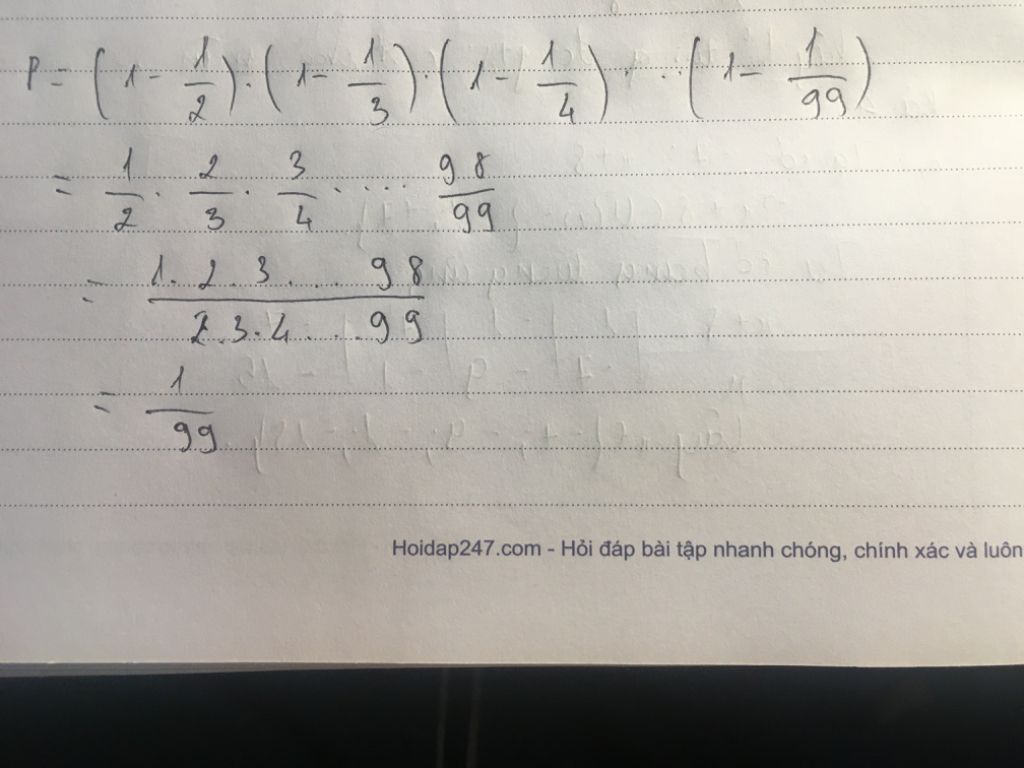 P = (1 - 1/2) . (1 - 1/3) . (1 - 1/4) . ... (1 - 1/99)
= 1/2 . 2/3 . 3/4 ..... 98/99
= 1. 2. 3 ... 98 / 2.3.4 .... 99
= 1/99
Hoidap247.com - Hỏi đáp bài tập nhanh chóng, chính xác và luôn